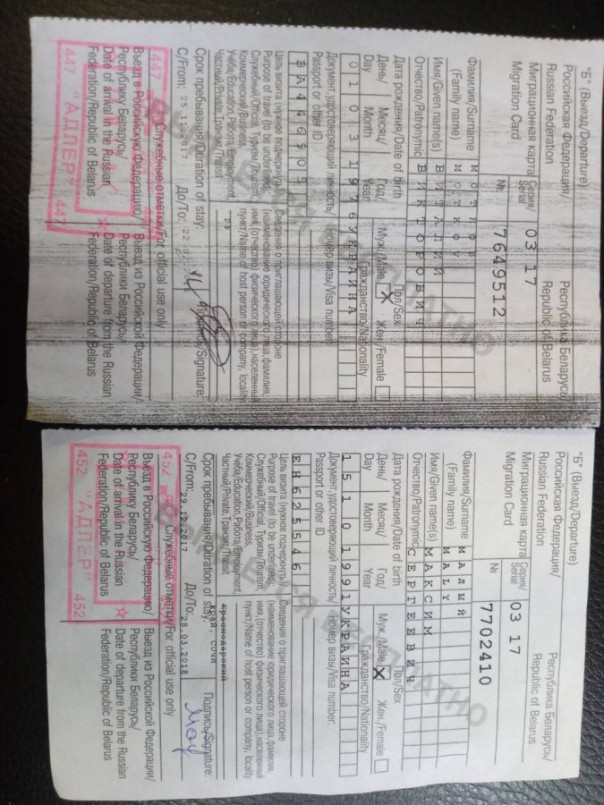 "Б" (Выезд/Departure)
Российская Федерация/ Республика Беларусь/
Russian Federation Republic of Belarus
Миграционная карта Серия/Serial 03 17
Migration Card № 7649512
Фамилия/Surname
(Family name)
Имя/Given name(s) ВИТАЛИЙ
Отчество/Patronymic ВИКТОРОВИЧ
Дата рождения/Date of birth Пол/Sex
День/ Месяц/ Год/ Муж./Male X Жен./Female
Day Month Year Гражданство/Nationality
01031976 УКРАИНА
Документ, удостоверяющий личность/ Номер визы/Visa number:
Passport or other ID
ВА446905
Цель визита (нужное подчеркнуть)/ Сведения о приглашающей стороне
Purpose of travel (to be underlined): (наименование юридического лица, фамилия,
Служебный/Official, Туризм/Tourism, имя, (отчество) физического лица), населенный
Коммерческий/Business, пункт/Name of host person or company, locality
Учёба/Education, Работа/Employment,
Частный/Private, Транзит/Transit
Срок пребывания/Duration of stay: Подпись/Signature:
С/From: До/To:
Служебные отметки/For official use only
Въезд в Российскую Федерацию/ Выезд из Российской Федерации/
Республику Беларусь/ Республики Беларусь/
Date of arrival in the Russian Date of departure from the Russian
Federation/Republic of Belarus Federation/Republic of Belarus
447 447
447 "АДЛЕР" 447
"Б" (Выезд/Departure)
Российская Федерация/ Республика Беларусь/
Russian Federation Republic of Belarus
Миграционная карта Серия/Serial 03 17
Migration Card № 7702410
Фамилия/Surname МАЛЫЙ
(Family name) MALY
Имя/Given name(s) МАКСИМ
Отчество/Patronymic СЕРГЕЕВИЧ
Дата рождения/Date of birth Пол/Sex
День/ Месяц/ Год/ Муж./Male X Жен./Female
Day Month Year Гражданство/Nationality
15101991 УКРАИНА
Документ, удостоверяющий личность/ Номер визы/Visa number:
Passport or other ID
ЕН625546
Цель визита (нужное подчеркнуть)/ Сведения о приглашающей стороне
Purpose of travel (to be underlined): (наименование юридического лица, фамилия,
Служебный/Official, Туризм/Tourism, имя, (отчество) физического лица), населенный
Коммерческий/Business, пункт/Name of host person or company, locality
Учёба/Education, Работа/Employment,
Частный/Private, Транзит/Transit
Краснодарский
край, Сочи
Срок пребывания/Duration of stay: Подпись/Signature:
С/From: 29.12.2017 До/To: 28.03.2018
Служебные отметки/For official use only
Въезд в Российскую Федерацию/ Выезд из Российской Федерации/
Республику Беларусь/ Республики Беларусь/
Date of arrival in the Russian Date of departure from the Russian
Federation/Republic of Belarus Federation/Republic of Belarus
452
452 "АДЛЕР" 452